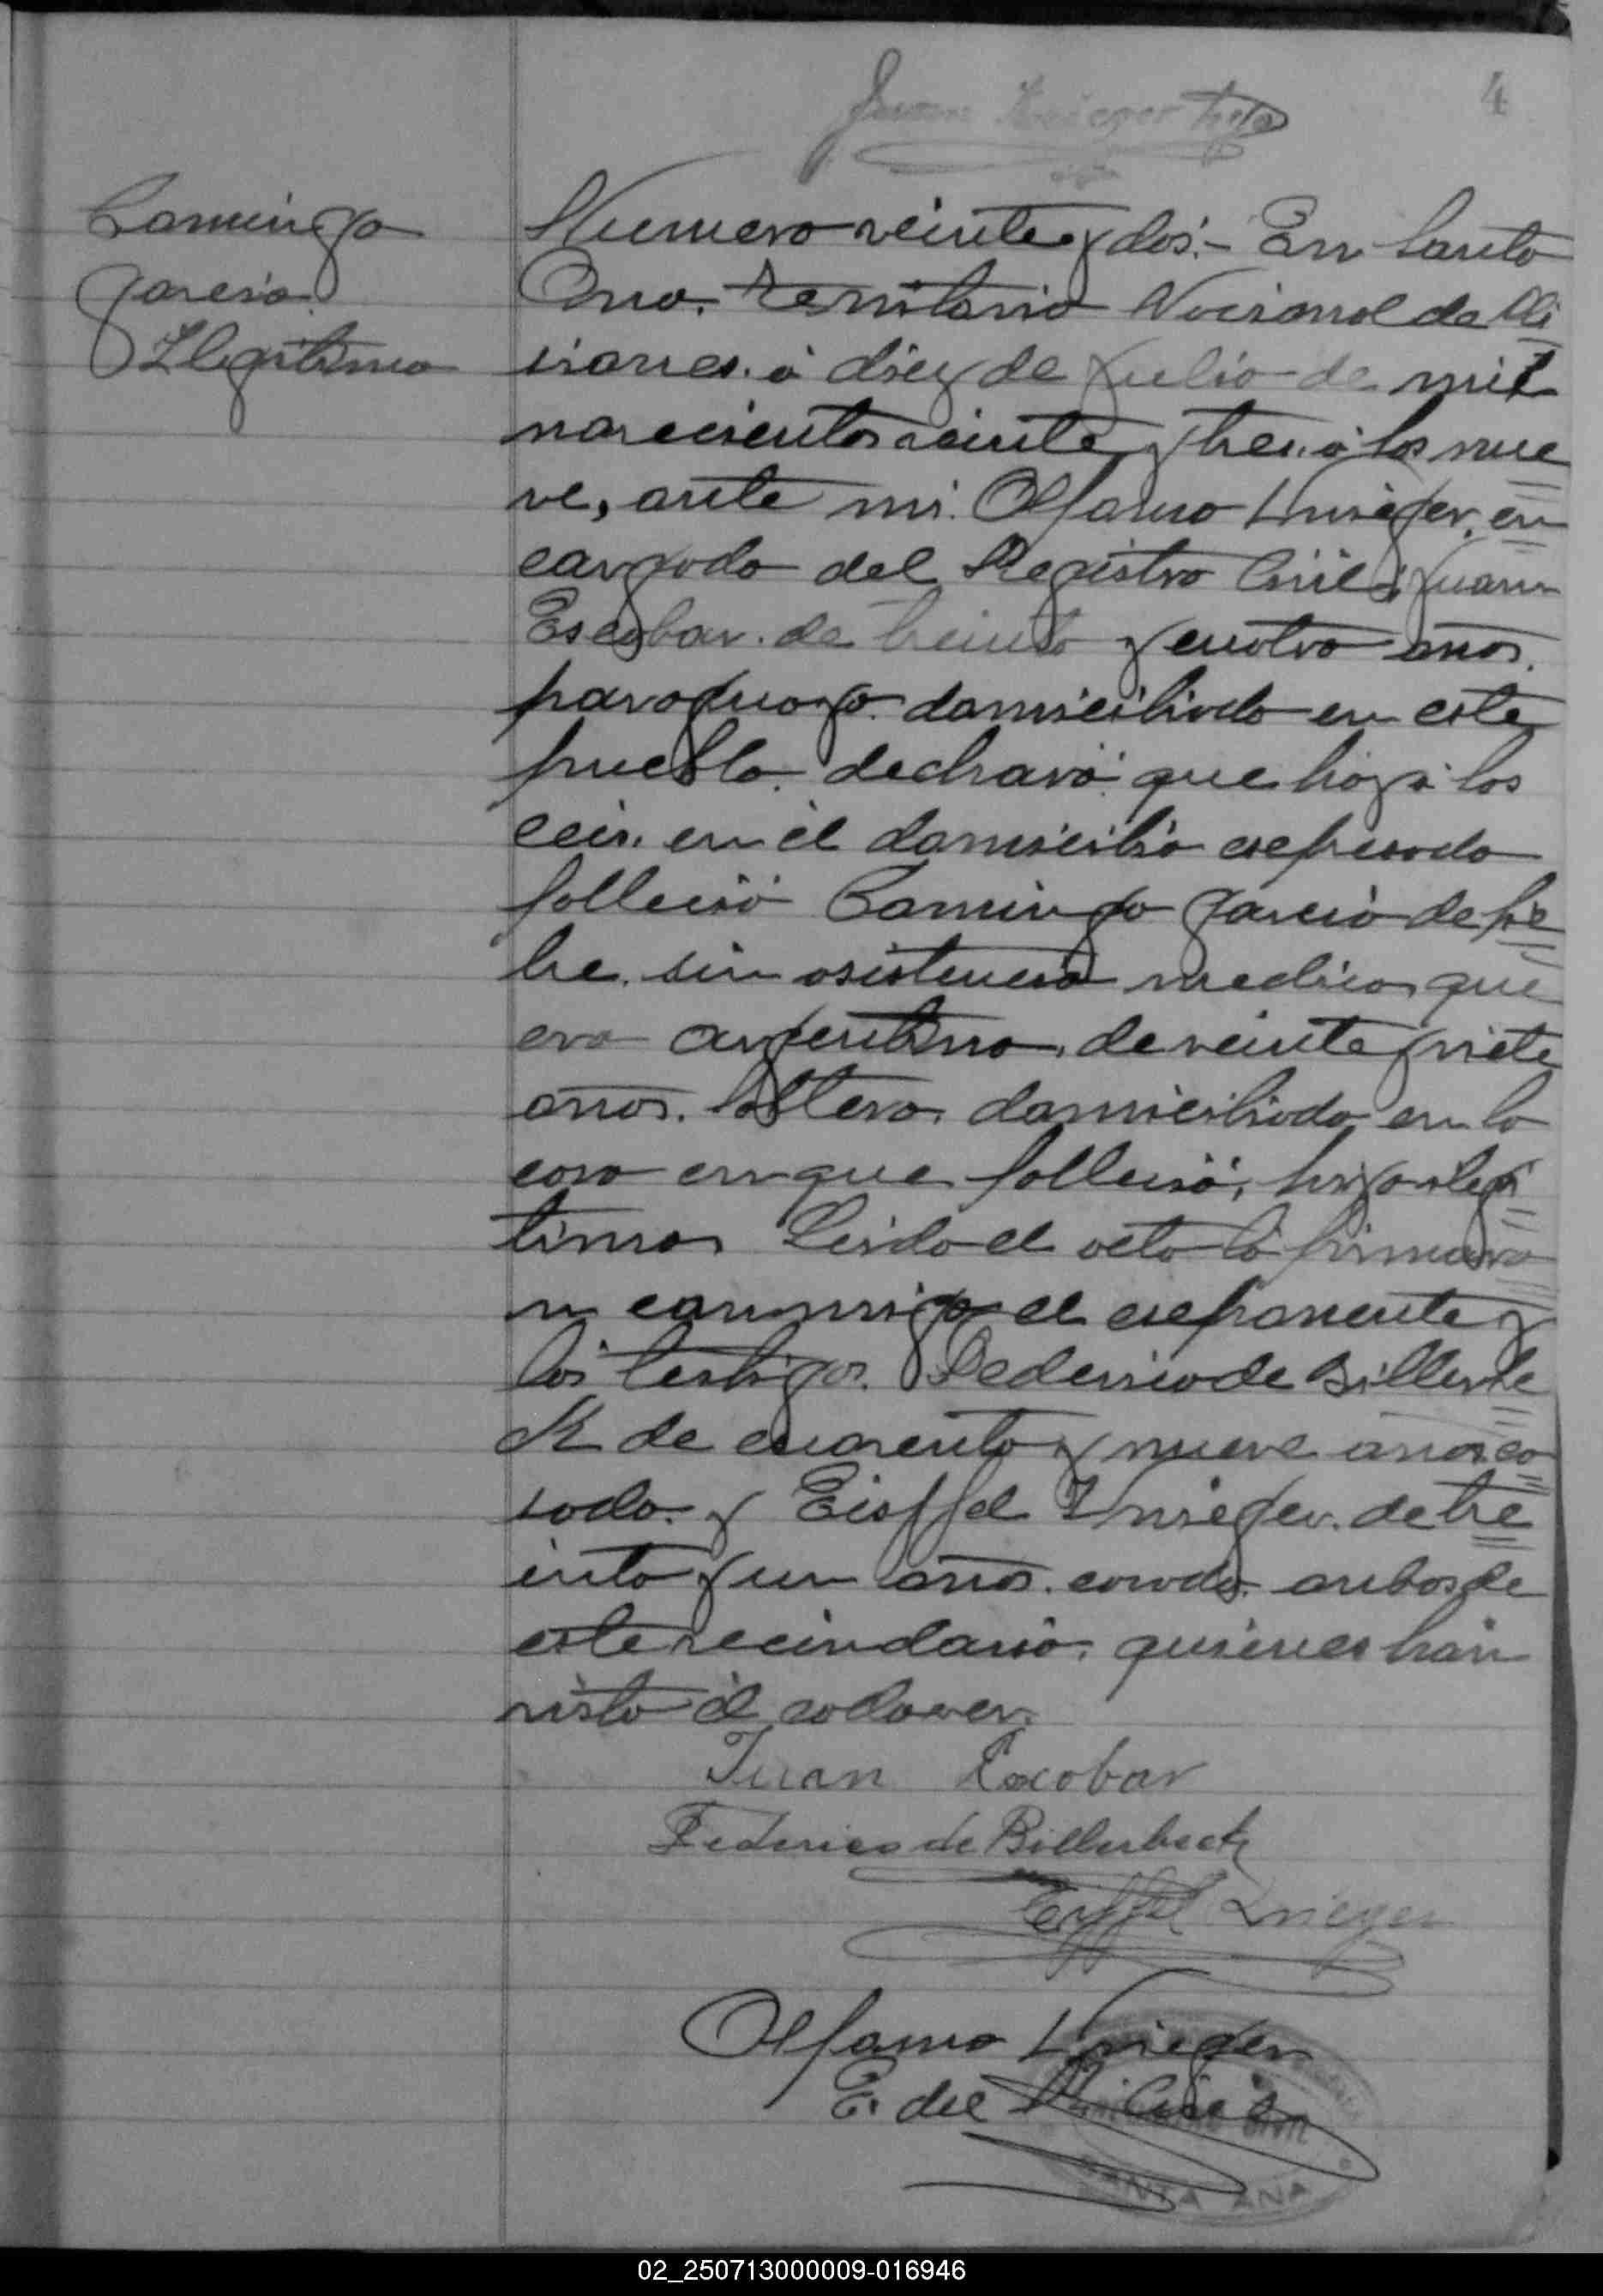 4
Domingo
Garcia
Ilegitimo
Numero veinte y dos.- En Santa
Ana. Territorio Nacional de Mi
siones. á diez de Julio de mil
novecientos veinte y tres. á las nue
ve, ante mi. Olfano Krieger. en
cargado del Registro Civil; Juan
Escobar. de treinta y cuatro años.
paraguayo. domiciliado en este
pueblo. declaró: que hoy á las
seis. en el domicilio expresado
falleció Domingo Garcia de fie
bre. sin asistencia medica, que
era argentino. de veinte y siete
años. soltero. domiciliado en la
casa en que falleció, hijo ilegi
timo. Leida el acta la firmaro
n conmigo el exponente y
los testigos. Federico de Billerbe
ck de cuarenta y nueve años. ca
sado. y Eiffel Krieger. de tre
inta y un años. casado. ambos de
este vecindario. quienes han
visto el cadaver.
Juan Escobar
Federico de Billerbeck
Eiffel Krieger
Olfano Krieger
E. del R. Civil
CIVIL
SANTA ANA
02_250713000009-016946